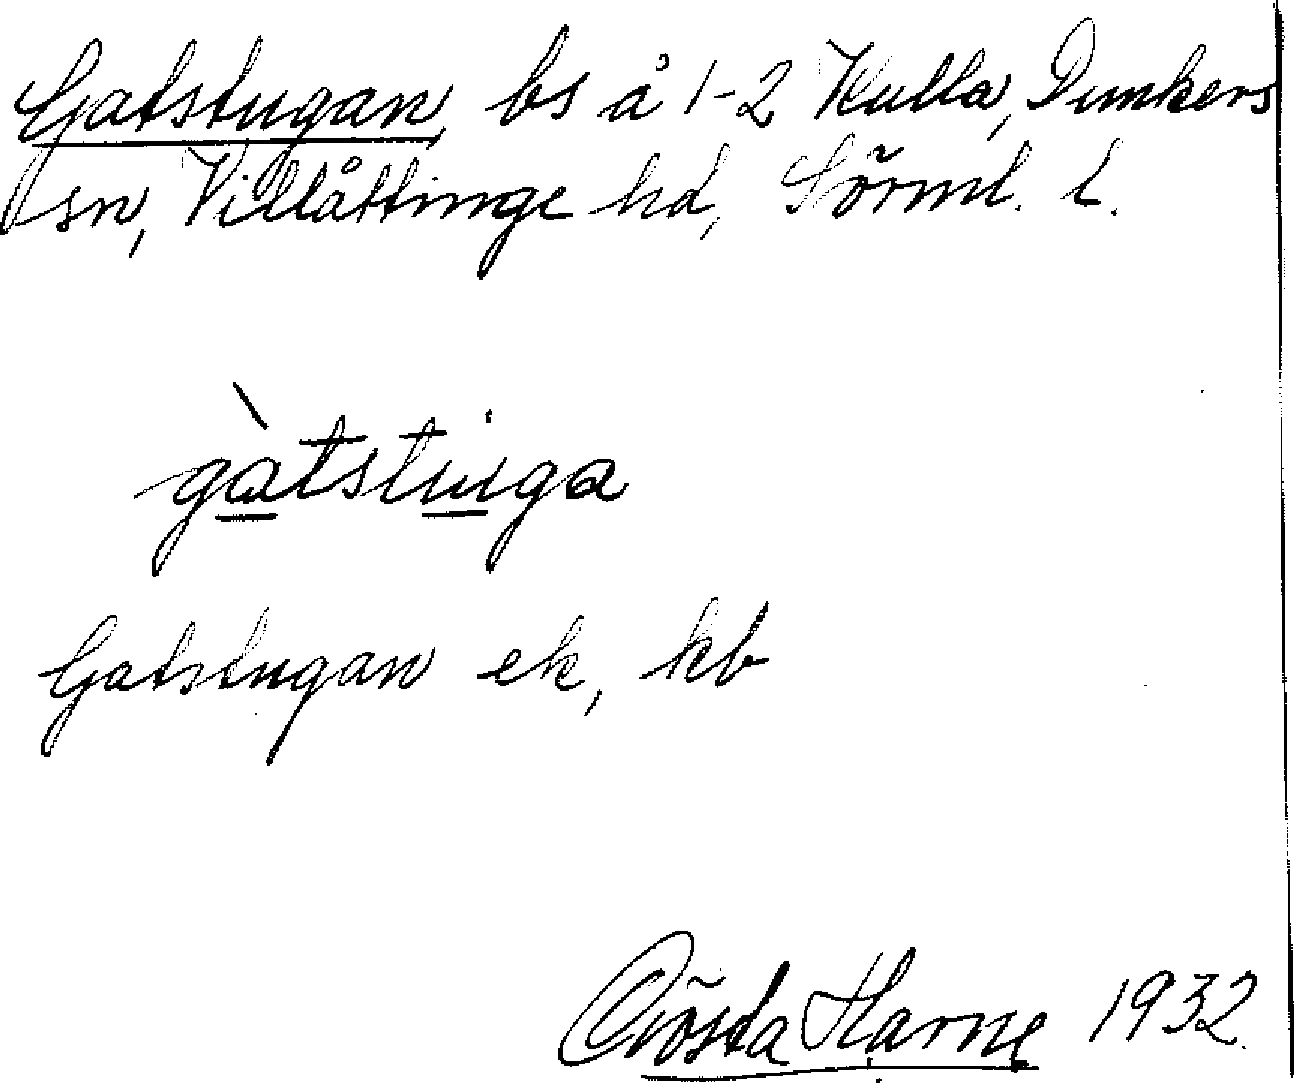 Gatstugan, bs å 1-2 Kulla, Dunkers
sn, Villåttinge hd, Sörml. l.
gàtstuga
Gatstugan ek, kb
Gösta Harne 1932.